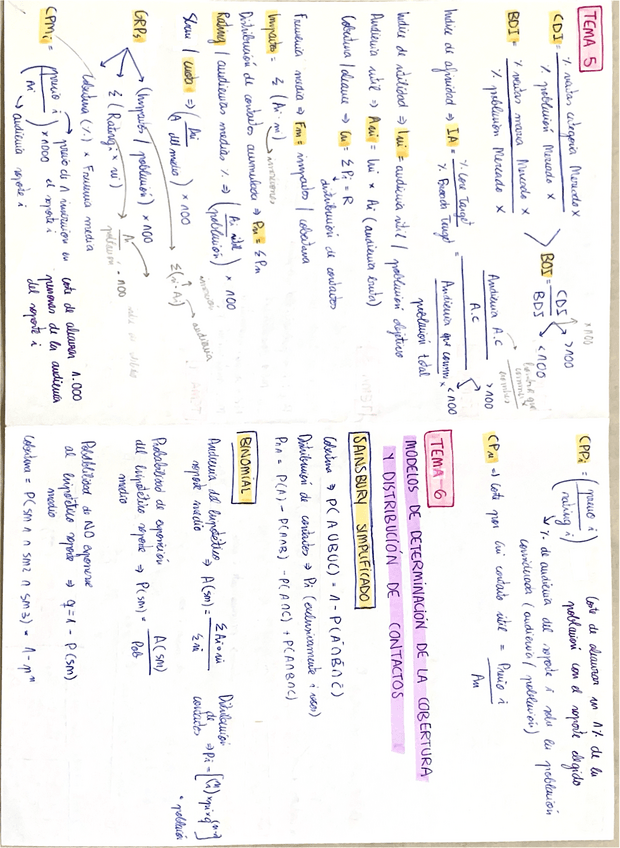 TEMA 5
CDI = % ventas categoría Mercado x / % población Mercado x
BDI = % ventas marca Mercado x / % población Mercado x
BOI = CDI / BDI
> 100
< 100
Indice de afinidad ⇒ IA = % Core Target / % Target = Audiencia A.C / A.C
Indice de utilidad ⇒ Iui = audiencia útil / población objetivo
población total
Audiencia útil ⇒ Aui = Iui x Ai (audiencia bruta)
Cobertura / alcance ⇒ Cu = Σ Pi = R
distribución de contactos
Frecuencia media ⇒ Fm = impactos / cobertura
Impactos = Σ (Ai · ni)
inserciones
Distribución de contactos acumulados ⇒ Pm = Σ Pm
Rating / audiencias medias % ⇒ (Ai útil / población) x 100
Share / cuota ⇒ (Ai / A del medio) x 100
GRPs
(Impactos / población) x 100
Σ (Ratingi x ni)
Cobertura (%) x Frecuencia media
Σ(ni · Ai)
audiencia
CPMi = (precio i / Ai) x 1000
precio de 1 inserción en el soporte i
audiencia soporte i
Coste de alcanzar 1.000 personas de la audiencia del soporte i
CPPi = (precio i / rating i)
Coste de alcanzar un 1% de la población con el soporte elegido
% de audiencia del soporte i sobre la población considerada (audiencia / población)
⇒ Coste por cui contacto útil = Precio i / Au
TEMA 6
MODELOS DE DETERMINACIÓN DE LA COBERTURA
Y DISTRIBUCIÓN DE CONTACTOS
SAINSBURY SIMPLIFICADO
Cobertura ⇒ P(A∪B∪C) = 1 - P(A∩B∩C)
Distribución de contactos ⇒ Pi (exclusivamente i veces)
P(A) - P(A∩B) - P(A∩C) + P(A∩B∩C)
BINOMIAL
Audiencia del hipotético soporte medio ⇒ A(sm) = Σ Ai · ni / Σ ni
Distribución de contactos ⇒ Pi =
· población
Probabilidad de exposición del hipotético soporte medio ⇒ P(sm) = A(sm) / Pob
Probabilidad de NO exponerse al hipotético soporte medio ⇒ q = 1 - P(sm)
Cobertura = P(sm1 ∩ sm2 ∩ sm3) = 1 -